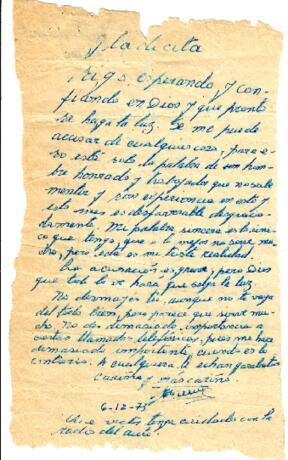 Pladicita
Sigo esperando y con-
fiando en Dios y que pronto
se haga la luz. Se me puede
acusar de cualquier cosa, para e-
so está solo la palabra de un hom-
bre honrado y trabajador que no sabe
mentir y sin experiencia en esto y
esto más es desfavorable desgracia-
damente. Mi palabra sincera es lo úni-
co que tengo que a lo mejor no será mu-
cho, pero esta es mi triste realidad.
La acusación es grave, pero Dios
que todo lo ve hará que salga la luz
No desmayes tú, aunque no te vaya
del todo bien, pero parece que será mu-
cho. No des demasiada importancia a
ciertas llamadas telefónicas, pues me hace
demasiado importante, cuando es lo
contrario. A cualquiera le echan garabatos
Cariños y más cariños
6-12-73
Que vectis tenga cuidado con la
radio del auto.